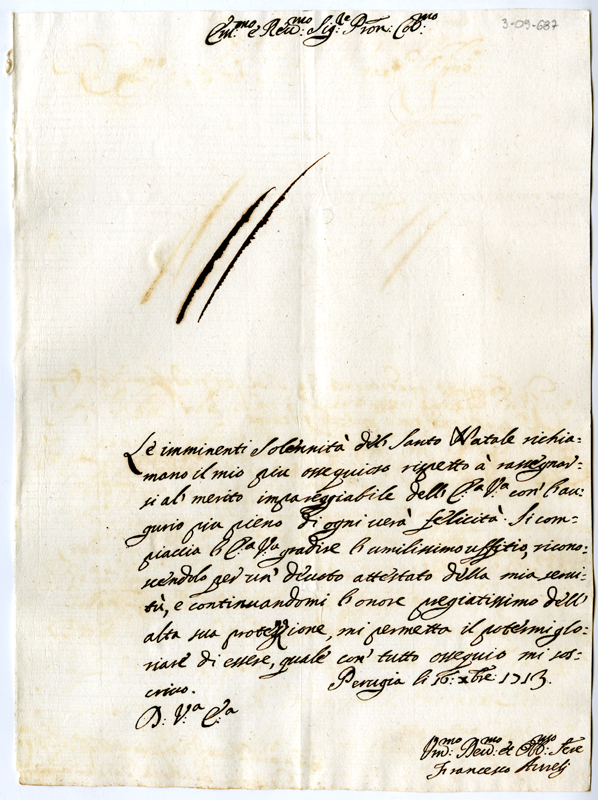 3-09-687
Em.mo e Rev.mo Sig.re Pron. Col.mo
Le imminenti Solennità dell Santo Natale richia-
mano il mio piu ossequioso rispetto à rassegnar-
si al merito impareggiabile dell' E.a V.a con l'au-
gurio piu pieno di ogni vera felicità. Si com-
piaccia l'E.a V.a gradire l'umilissimo uffitio, ricono-
scendolo per un' devoto attestato della mia servi-
tù, e continuandomi l'onore pregiatissimo dell'
alta sua protezzione, mi permetta il potermi glo-
riare di essere, quale con' tutto ossequio mi sos-
crivo. Perugia li 16: xbre 1713.
D: V.a E.a
Um.mo Dev.mo et Obb.mo Serve
Francesco Aurelj